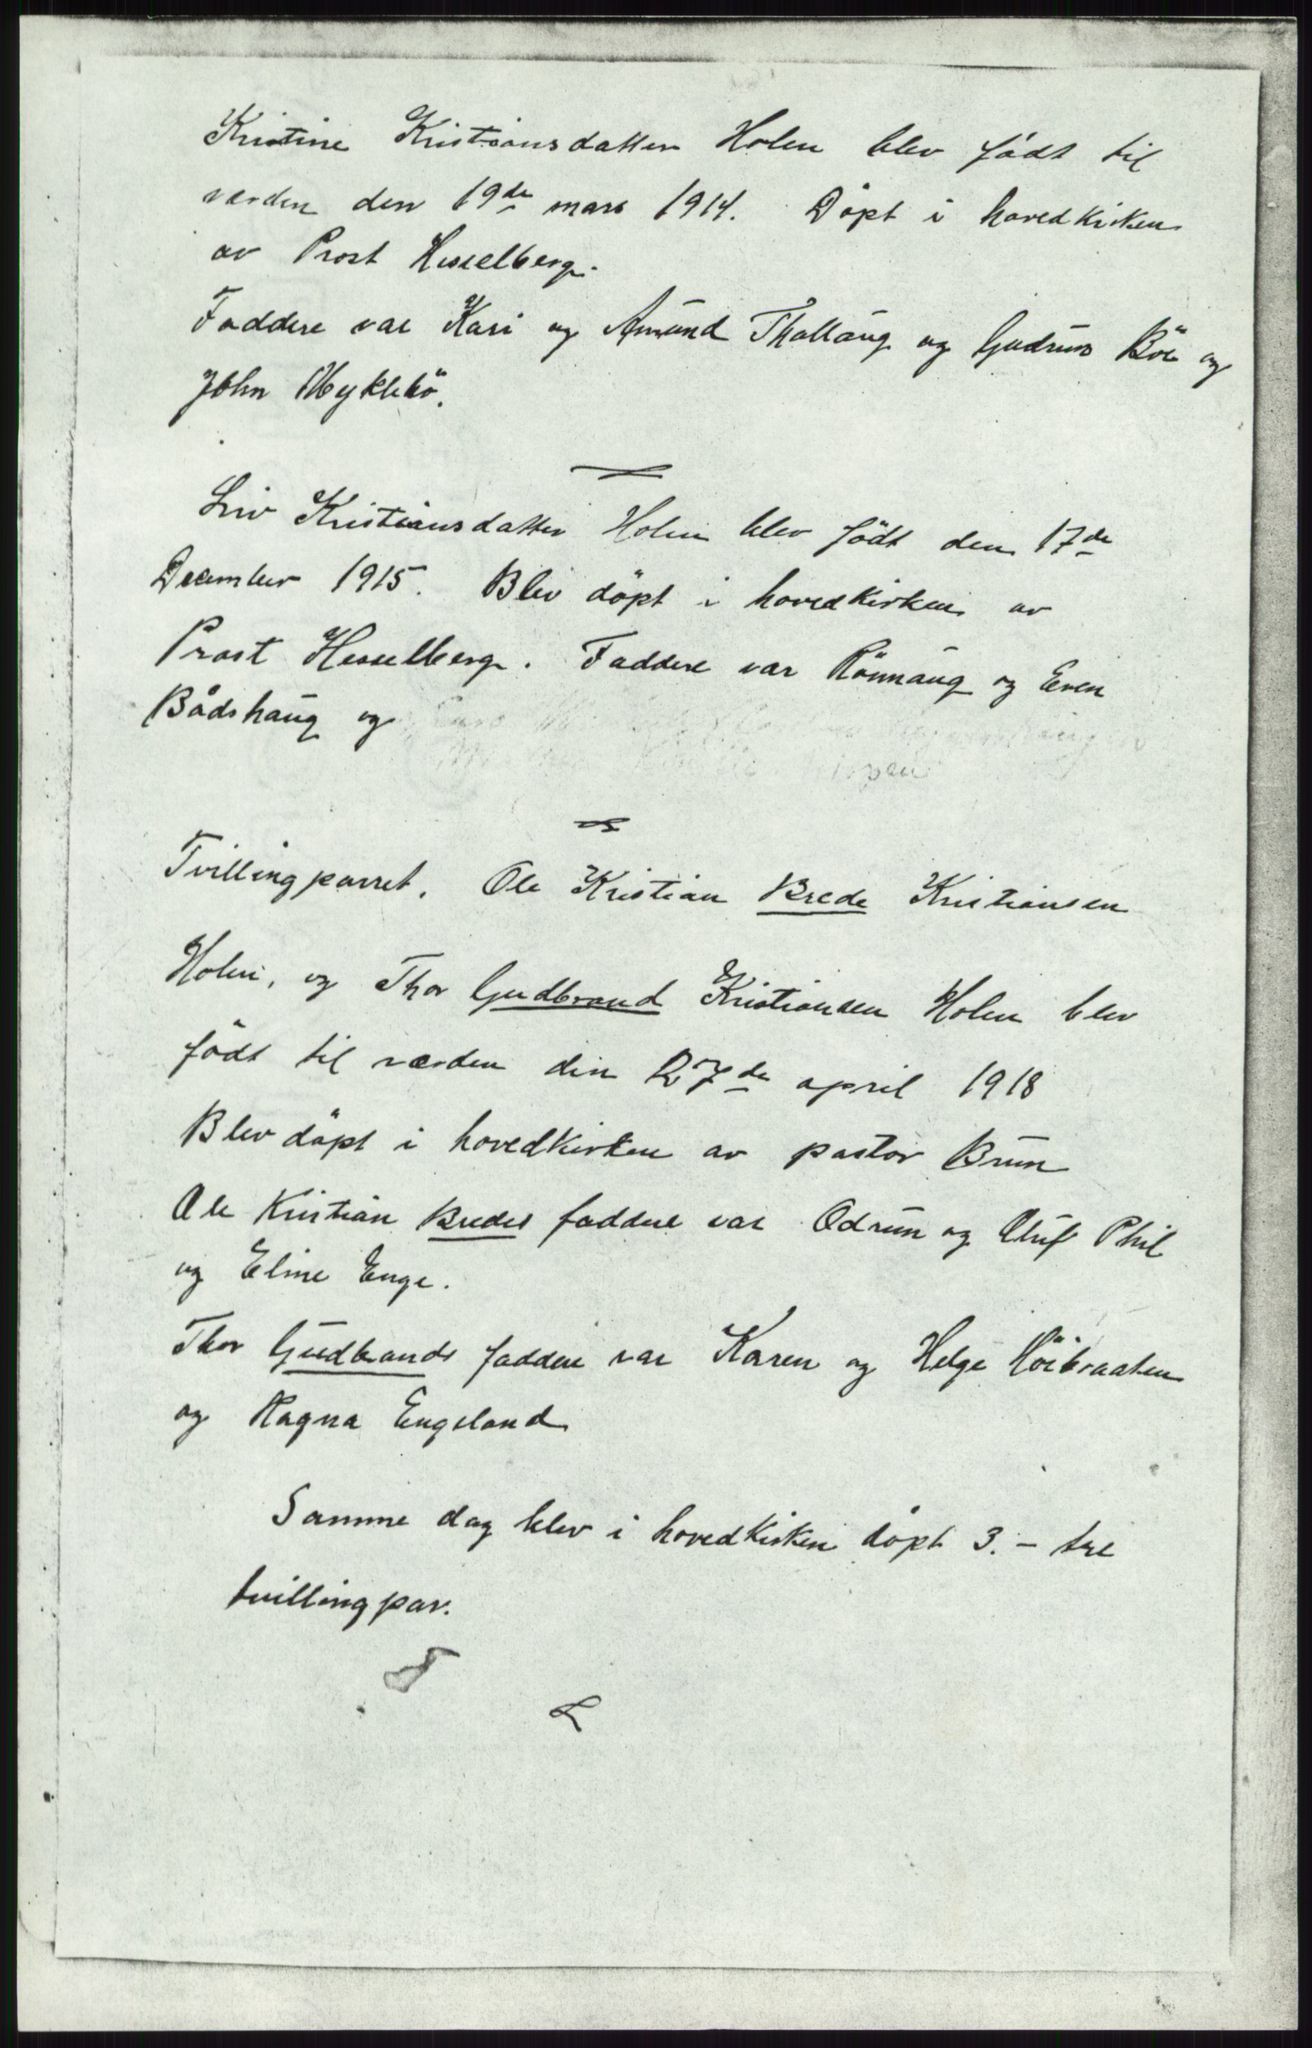 Kristine Kristiansdatter Holen blev född til
verden den 19de mars 1914. Döpt i hovedkirken
av Prost Hesselberg.
Faddere var Kari og Amund Thallaug og Gudrun Böe og
John Myklebö.
Liv Kristiansdatter Holen blev född den 17de
December 1915. Blev döpt i hovedkirken av
Prost Hesselberg. Faddere var Rönnaug og Even
Bådshaug og
Tvillingparret. Ole Kristian Brede Kristiansen
Holen, og Thor Gudbrand Kristiansen Holen blev
född til verden den 27de april 1918
Blev döpt i hovedkirken av pastor Brun
Ole Kristian Bredes faddere var Odrun og Oluf Phil
og Eline Enge.
Thor Gudbrands faddere var Karen og Helge Höibraaten
og Ragna Engeland
Samme dag blev i hovedkirken döpt 3. - tre
tvillingpar.